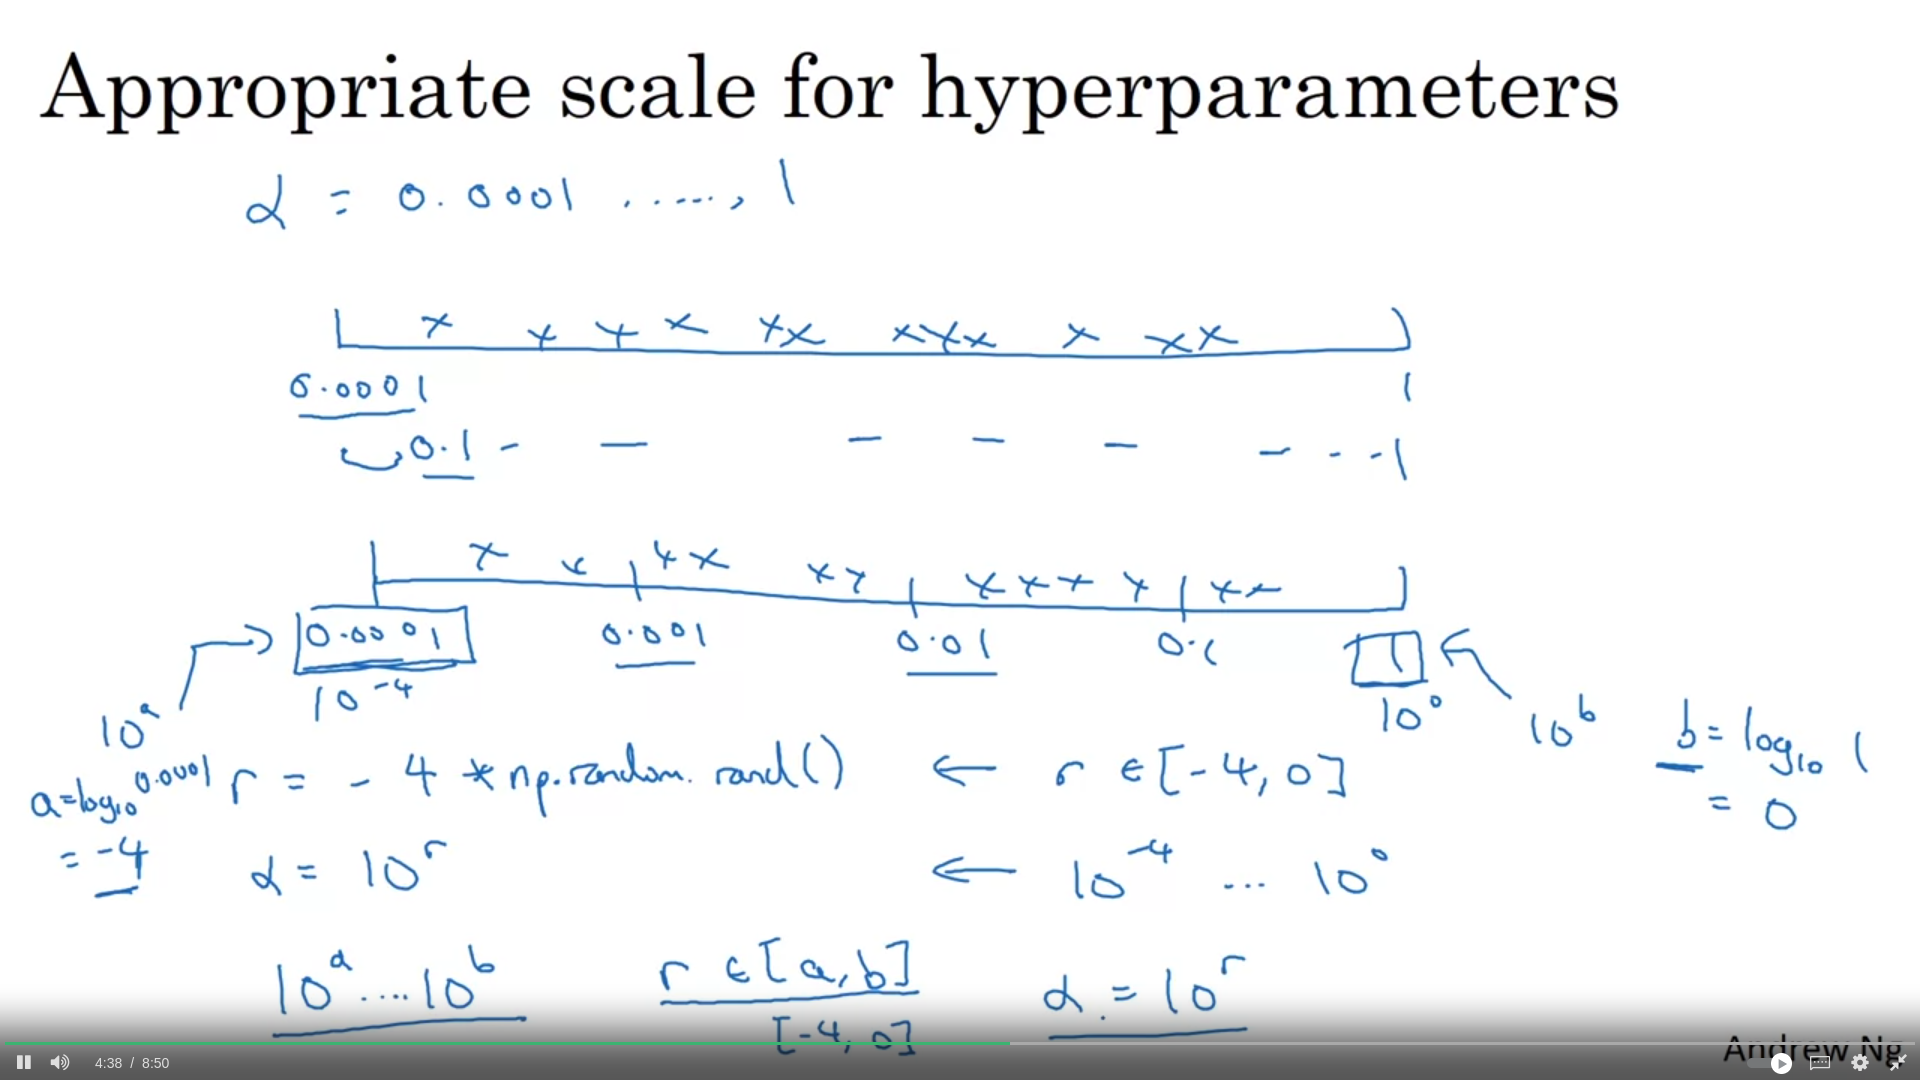 Appropriate scale for hyperparameters
α = 0.0001 ....., 1
0.0001 1
0.1 - - - - - - - - 1
0.0001 0.001 0.01 0.1 1
10^-4 10^0
10^a 10^b b = log₁₀ 1
a = log₁₀ 0.0001 r = -4 * np.random.rand() ← r ∈ [-4, 0] = 0
= -4 α = 10^r ← 10^-4 ... 10^0
10^a ....10^b r ∈ [a, b] α = 10^r
[-4, 0]
Andrew Ng
4:38 / 8:50